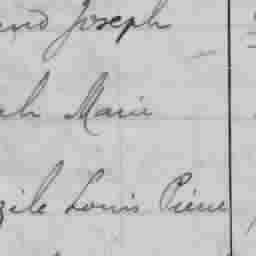 end Joseph
ah Marie
zile Louis Pierre